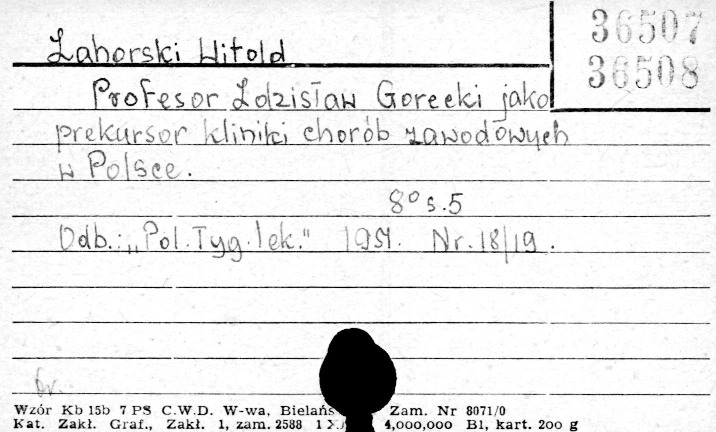 Zahorski Witold
36507
36508
Profesor Zdzisław Gorecki jako
prekursor kliniki chorób zawodowych
w Polsce.
8° s.5
Odb.: „Pol.Tyg.lek." 1951. Nr.18/19.
Wzór Kb 15b 7 PS C.W.D. W-wa, Bielańs Zam. Nr 8071/0
Kat. Zakł. Graf., Zakł. 1, zam. 2588 4,000,000 B1, kart. 200 g